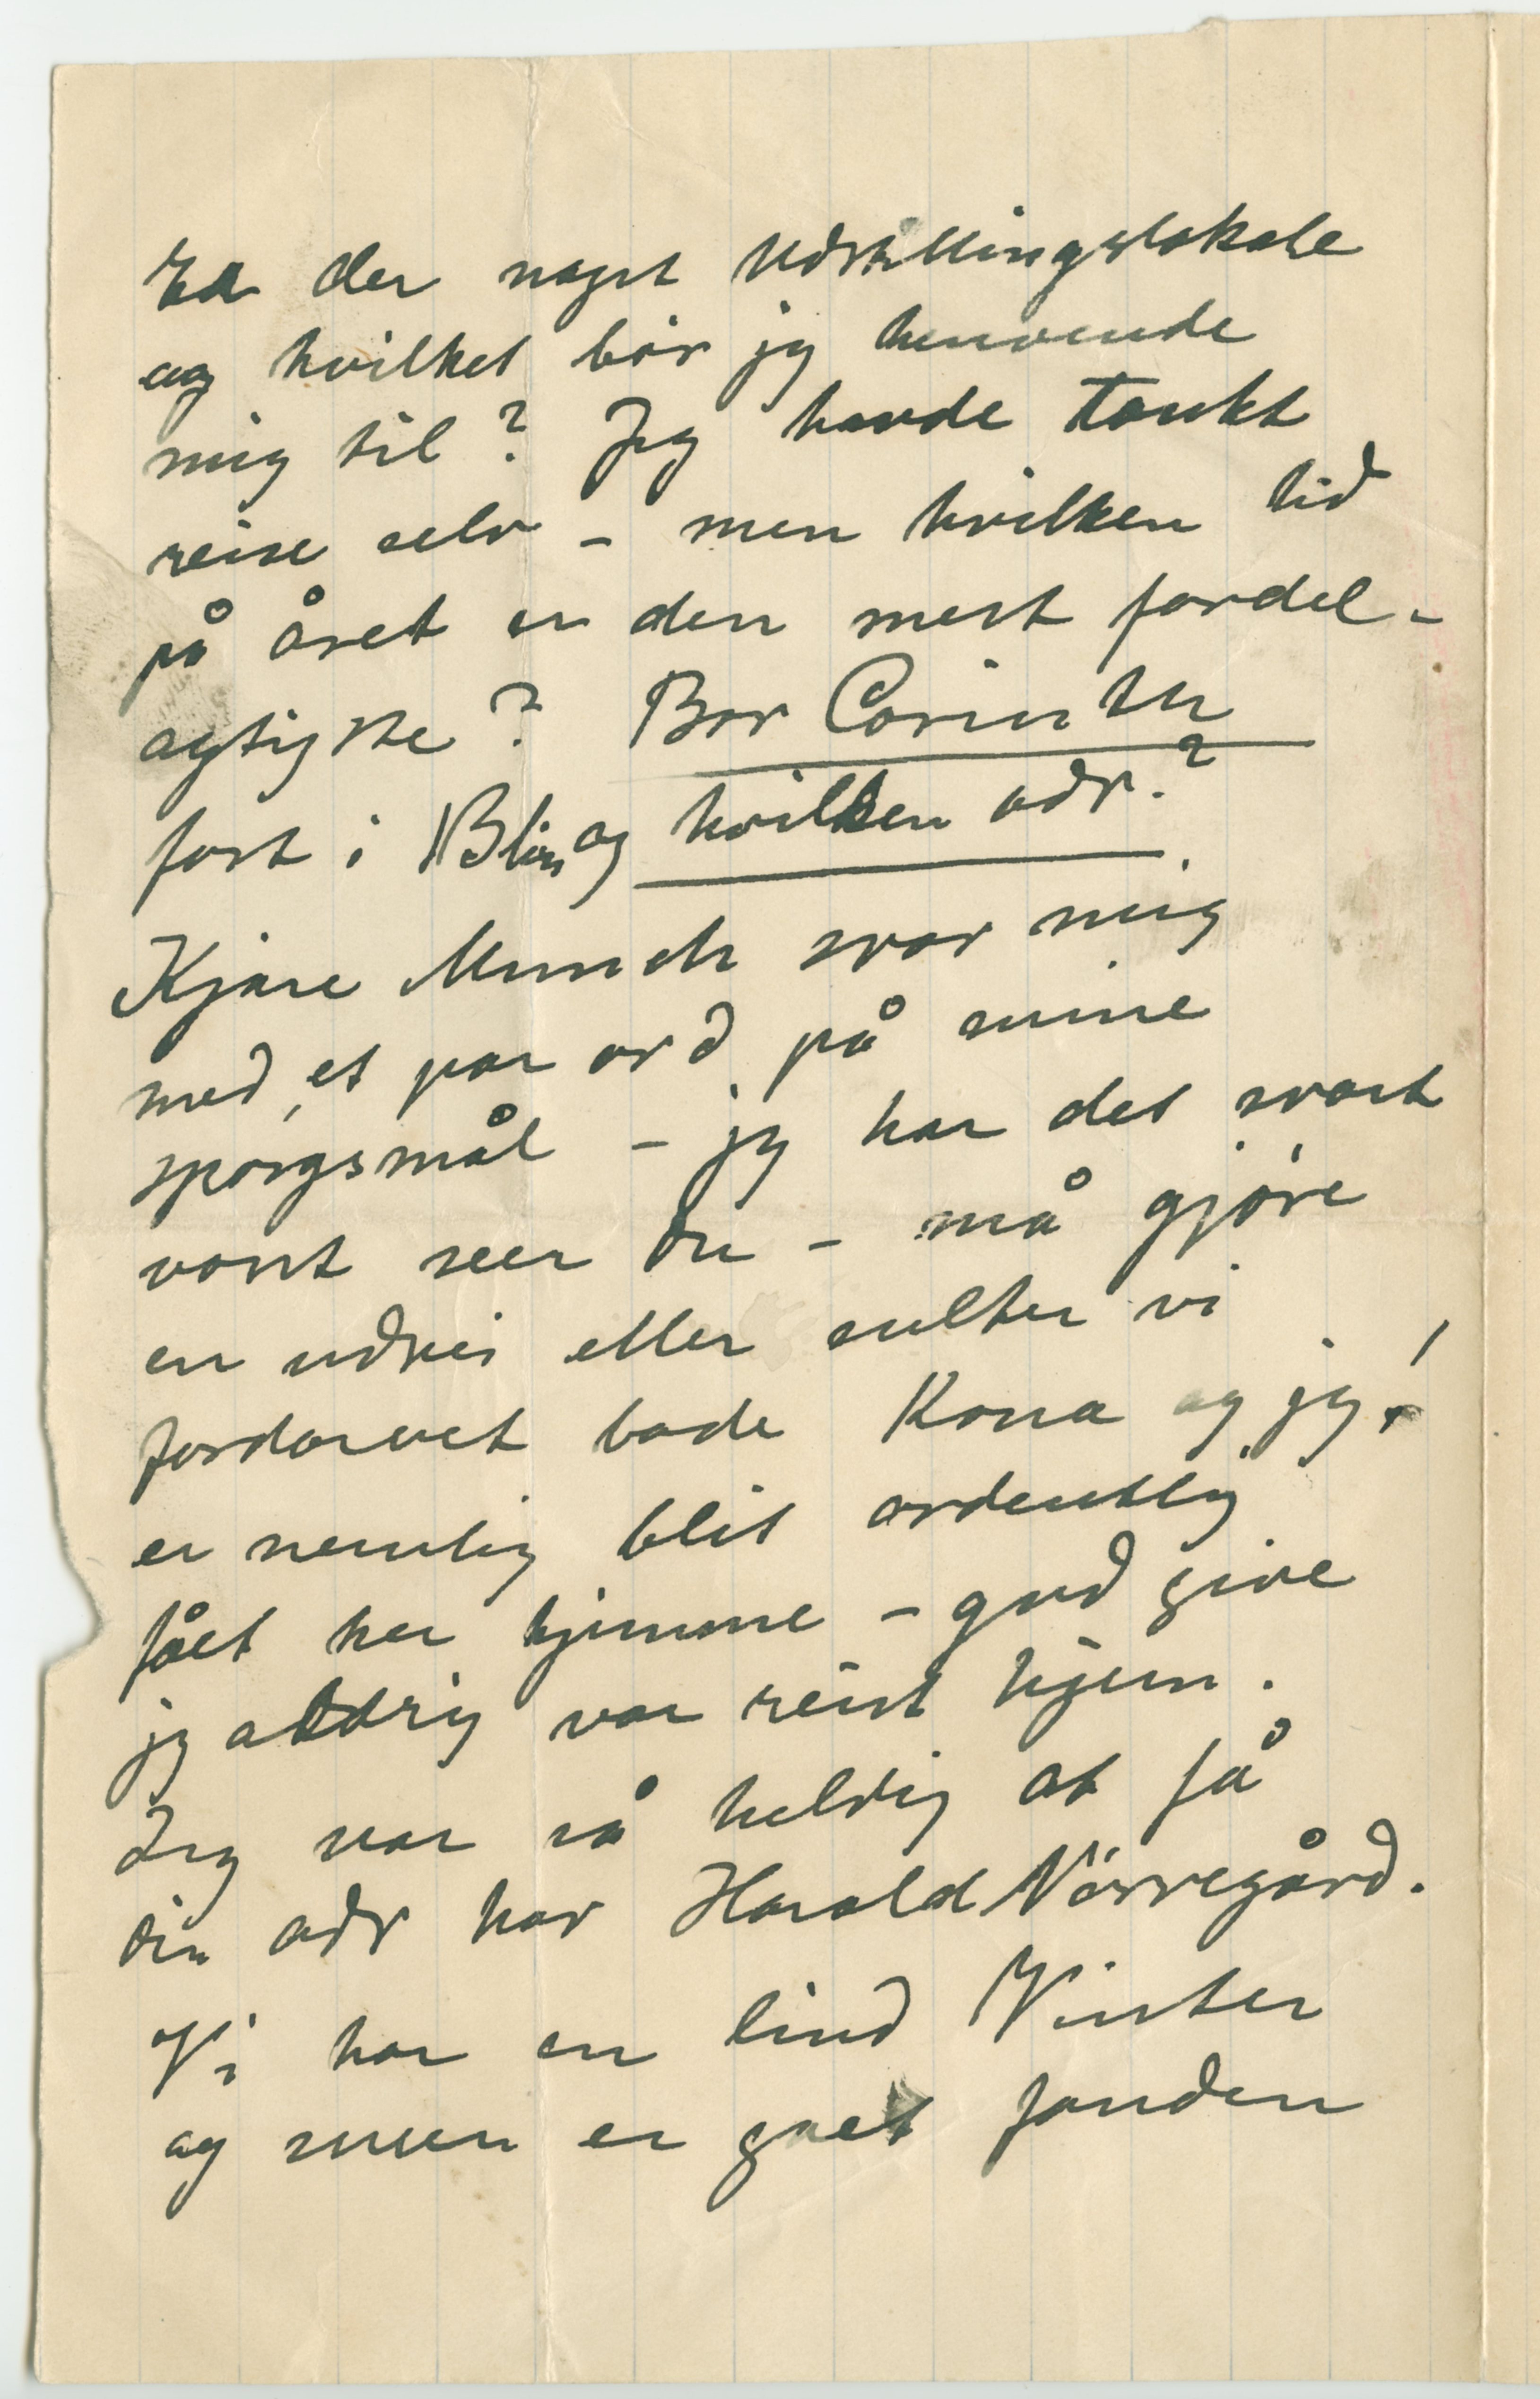 Er der noget Udstillingslokale
og hvilket bör jeg henvende
mig til? Jeg havde tænkt
reise selv – men hvilken tid
på året er den mest fordel-
agtigste? Bor Corinth
fort i Blin og hvilken adr?
Kjære Munch svar mig
med et par ord på mine
spörgsmål – jeg har det svært
vont seer du – må gjöre
en udvei eller sulter vi
fordærvet bade Kona og jeg!
er nemlig blit ordentlig
fået her hjemme – gud give
jeg aldrig var reist hjem.
Jeg var så heldig at få
din adr hor Harald Nörregård.
Vi har en lind Vinter
og sneen er gaet fanden